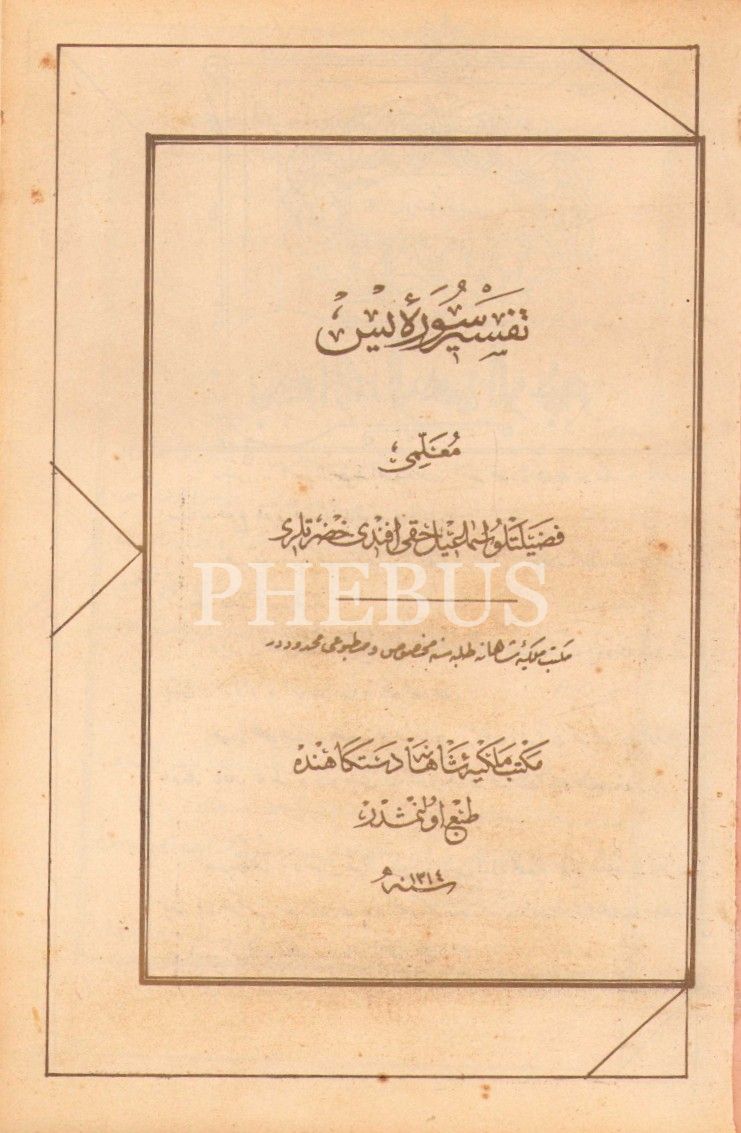 تفسير سورهٔ يس
مُعَلِّمى
فضيلتلو اسماعيل حقى افندى حضرتلرى
PHEBUS
مكتب ملكيهٔ شاهانه طلبه سنه مخصوص و مطبوعى محدوددر
مكتب ملكيهٔ شاهانه دستكاهنده
طبع اولنمشدر
سنه ١٣١٤